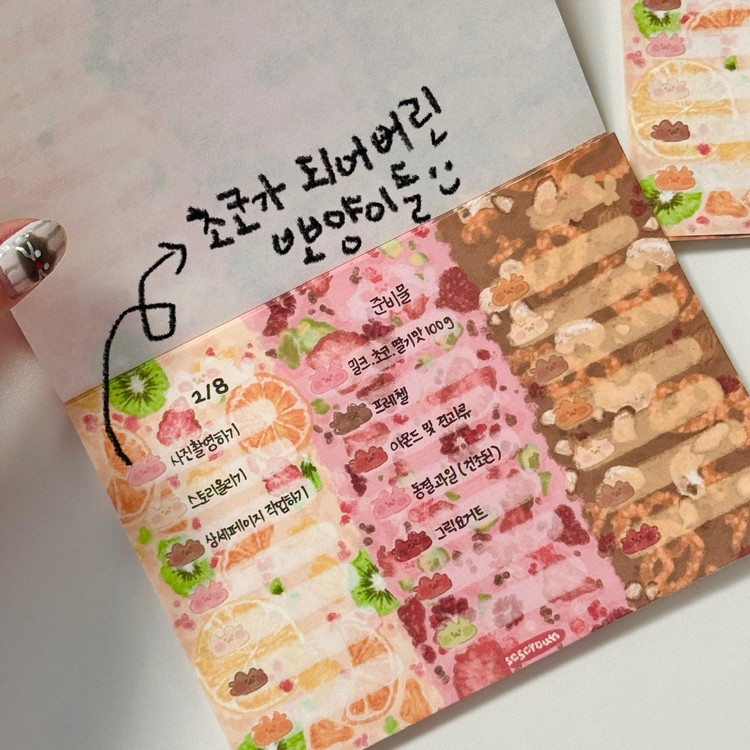 초코가 되어버린
뽀양이들 :)
2/8
사진촬영하기
스토리올리기
상세페이지 작업하기
준비물
밀크.초코.딸기맛 100g
프레첼
아몬드 및 견과류
동결과일 (건조된)
그릭요거트
soscroun